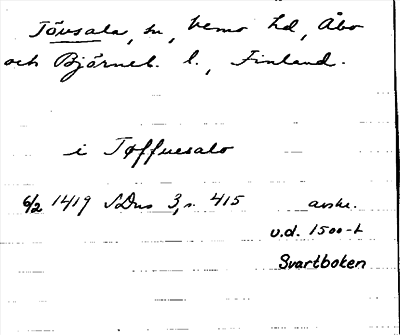 Tövsala, sn, Vemo hd, Åbo
och Björneb. l., Finland.
i Tøffuesalo
6/2 1419 SDns 3, s. 415 avskr.
u.d. 1500-t
Svartboken